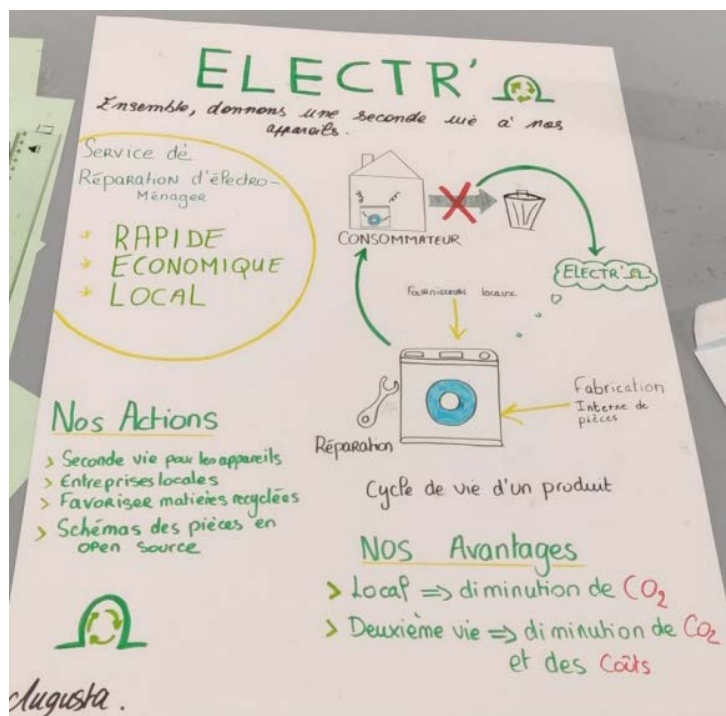 ELECTR'
Ensemble, donnons une seconde vie à nos
appareils.
Service de
Réparation d'électro-
Ménager
RAPIDE
ECONOMIQUE
LOCAL
CONSOMMATEUR
ELECTR'
Fournisseurs locaux
Fabrication
Interne de
pièces
Réparation
Cycle de vie d'un produit
Nos Actions
> Seconde vie pour les appareils
> Entreprises locales
> Favoriser matières recyclées
> Schémas des pièces en
open source
NOS Avantages
> Local => diminution de CO2
> Deuxième vie => diminution de CO2
et des Coûts
Augusta.